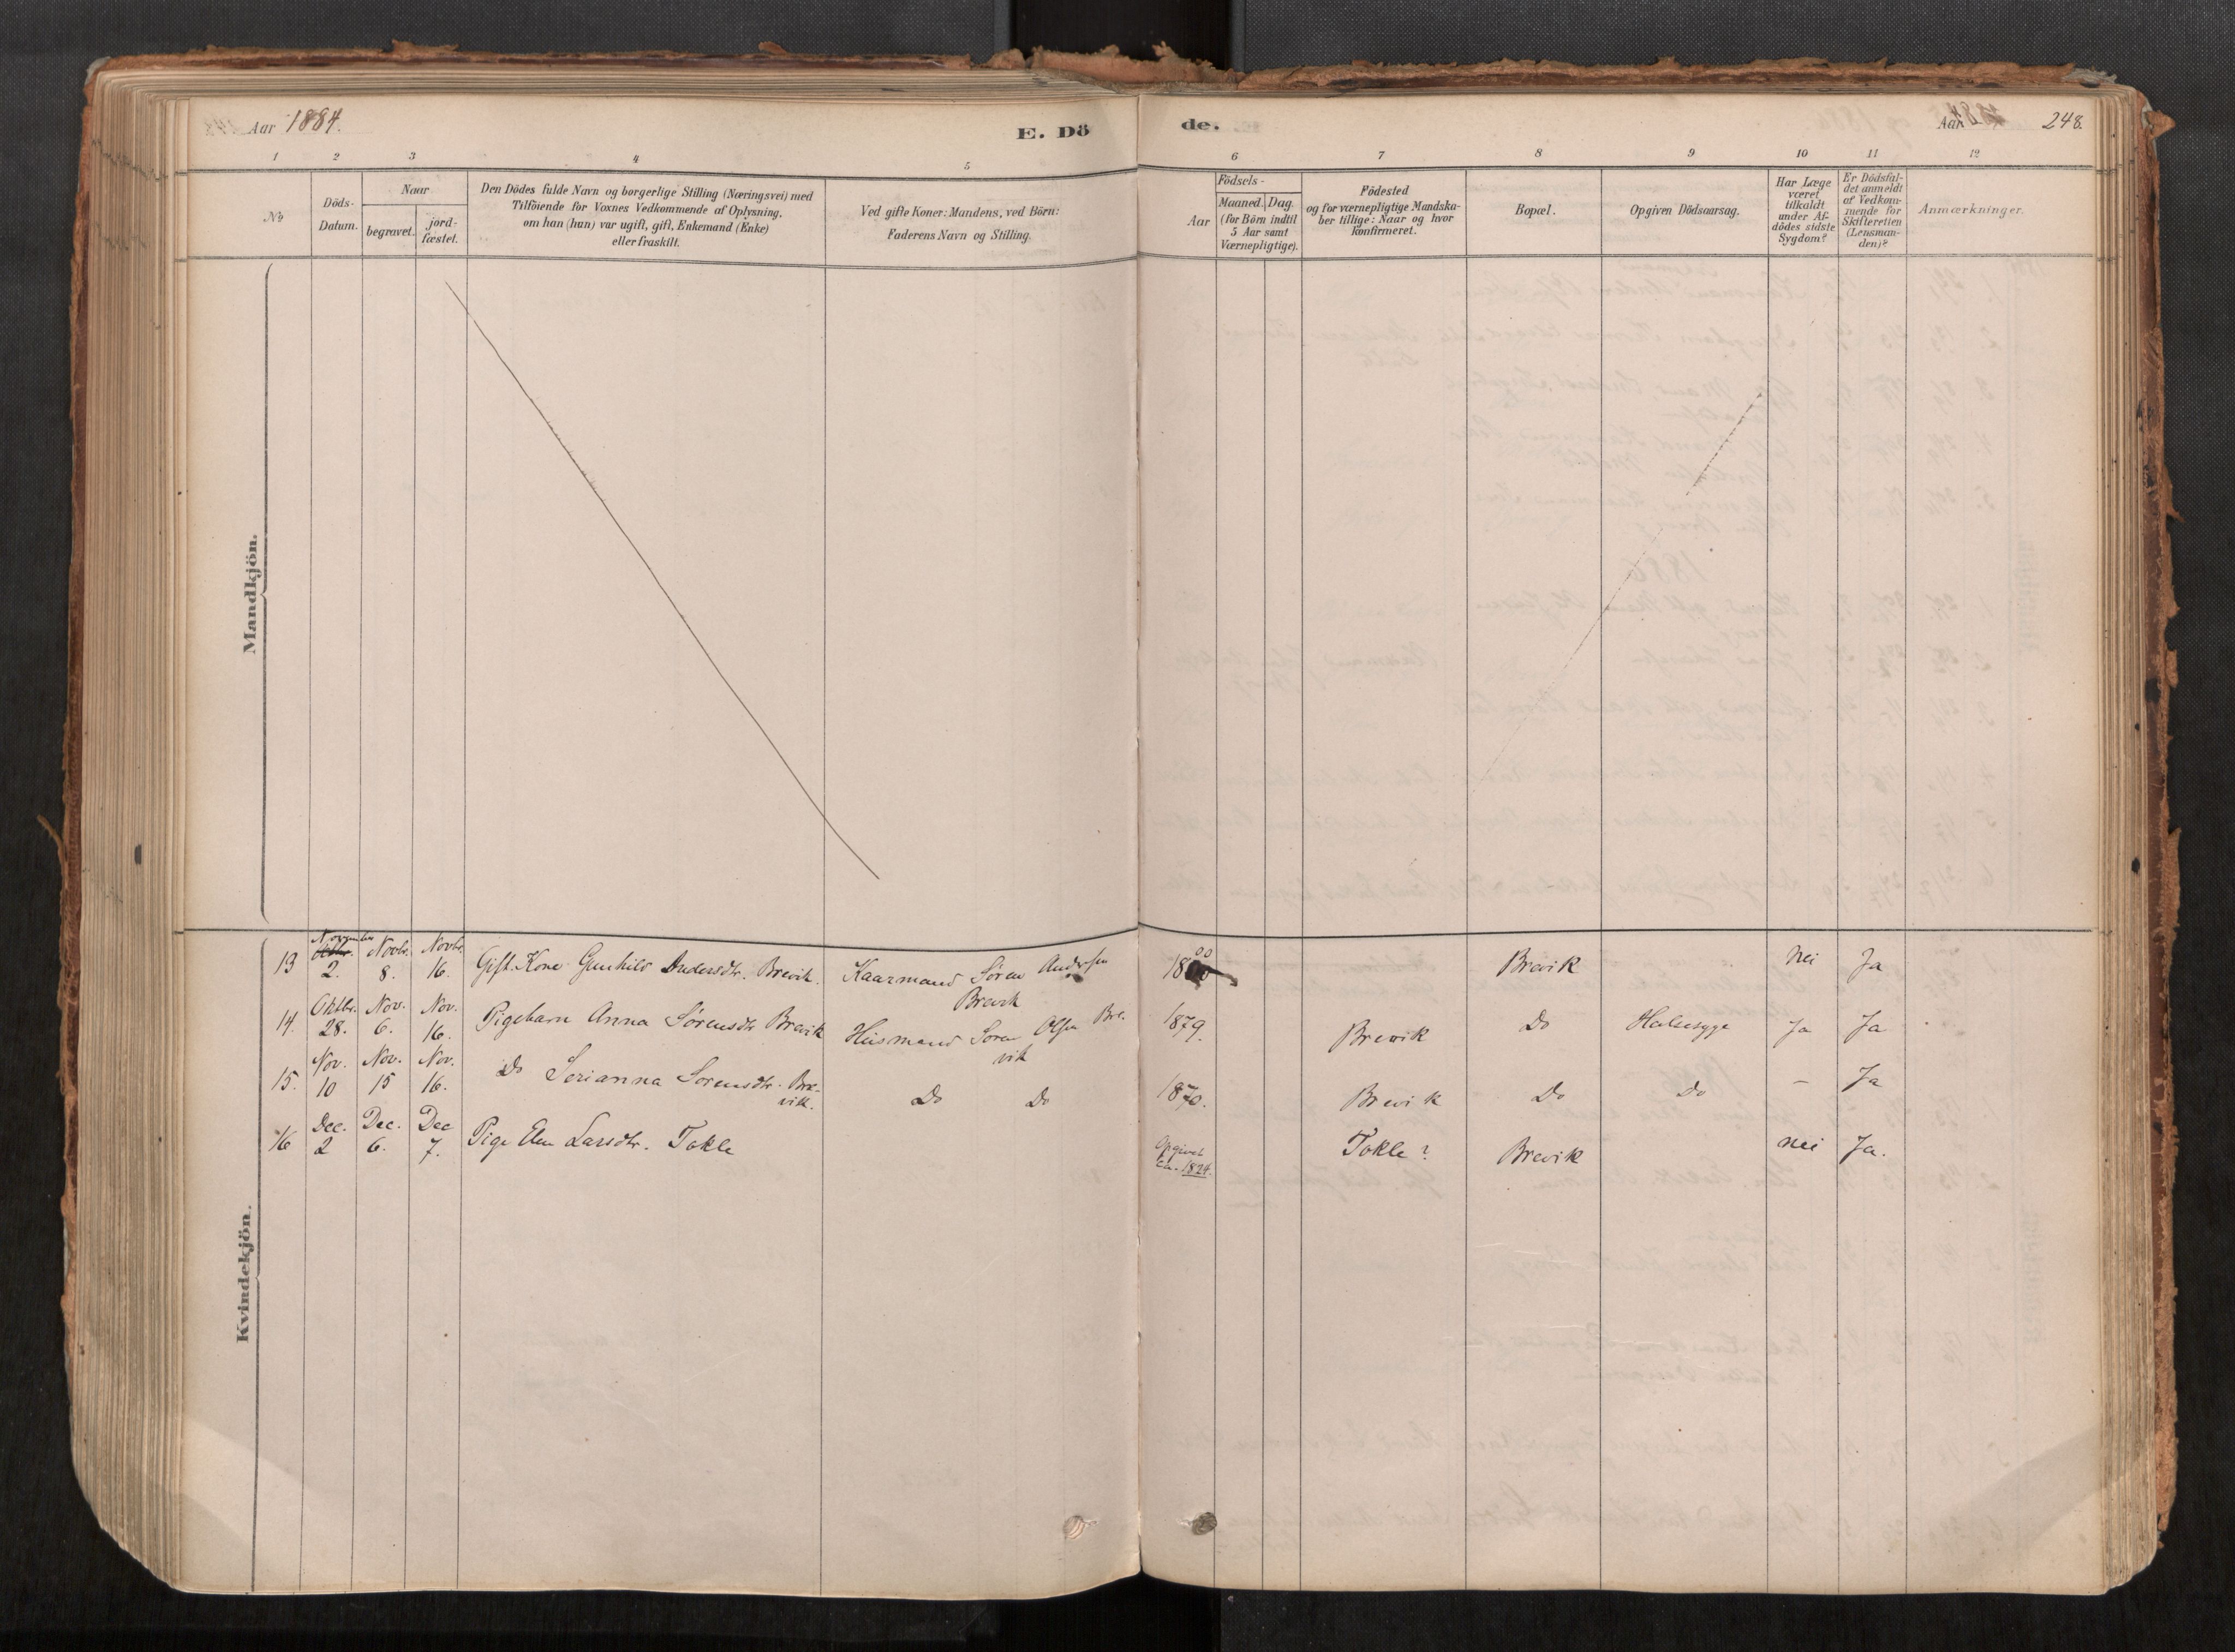 Aar 1884.
E. Dö
de.
Aar
248.
1 2 3 4 5 6 7 8 9 10 11 12
No
Döds-
Datum.
Naar
begravet.
jord-
fæstet.
Den Dödes fulde Navn og borgerlige Stilling (Næringsvei) med
Tilföiende for Voxnes Vedkommende af Oplysning,
om han (hun) var ugift, gift, Enkemand (Enke)
eller fraskilt.
Ved gifte Koner: Mandens, ved Börn:
Faderens Navn og Stilling.
Födsels-
Aar
Maaned. Dag.
(for Börn indtil
5 Aar samt
Værnepligtige).
Födested
og for værnepligtige Mandska-
ber tillige: Naar og hvor
konfirmeret.
Bopæl.
Opgiven Dödsaarsag.
Har Læge
været
tilkaldt
under Af-
dödes sidste
Sygdom?
Er Dödsfal-
det anmeldt
af Vedkom-
mende for
Skifteretten
(Lensman-
den)?
Anmærkninger.
Mandkjön.
Kvindekjön.
13 November 2. Novbr. 8. Novbr. 16. Gift. Kone Gunhild Andersdtr. Brevik. Kaarmand Sören Andersen
Brevik
1800 Brevik Nei Ja
14. Oktbr. 28. Nov. 6. Nov. 16. Pigebarn Anna Sörensdtr Brevik Husmand Soren Olsen Bre-
vik
1879. Brevik Do Halssyge Ja Ja
15. Nov. 10 Nov. 15 Nov. 16. Do Serianna Sorensdtr. Bre-
vik.
Do Do 1870. Brevik Do Do - Ja
16 Dec. 2 Dec. 6. Dec 7. Pige Elen Larsdtr. Tokle
Opgivet
ca. 1824.
Tokle? Brevik nei Ja.